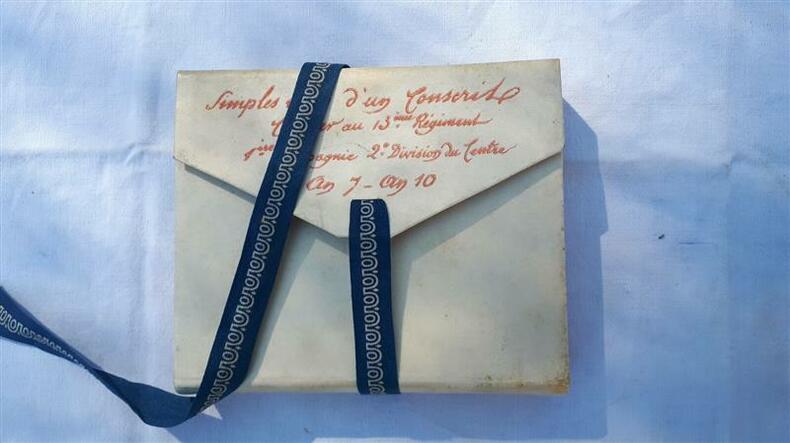 Simples d'un Conscrit
au 13ème Régiment
1ère 2e Division du Centre
An 7 - An 10